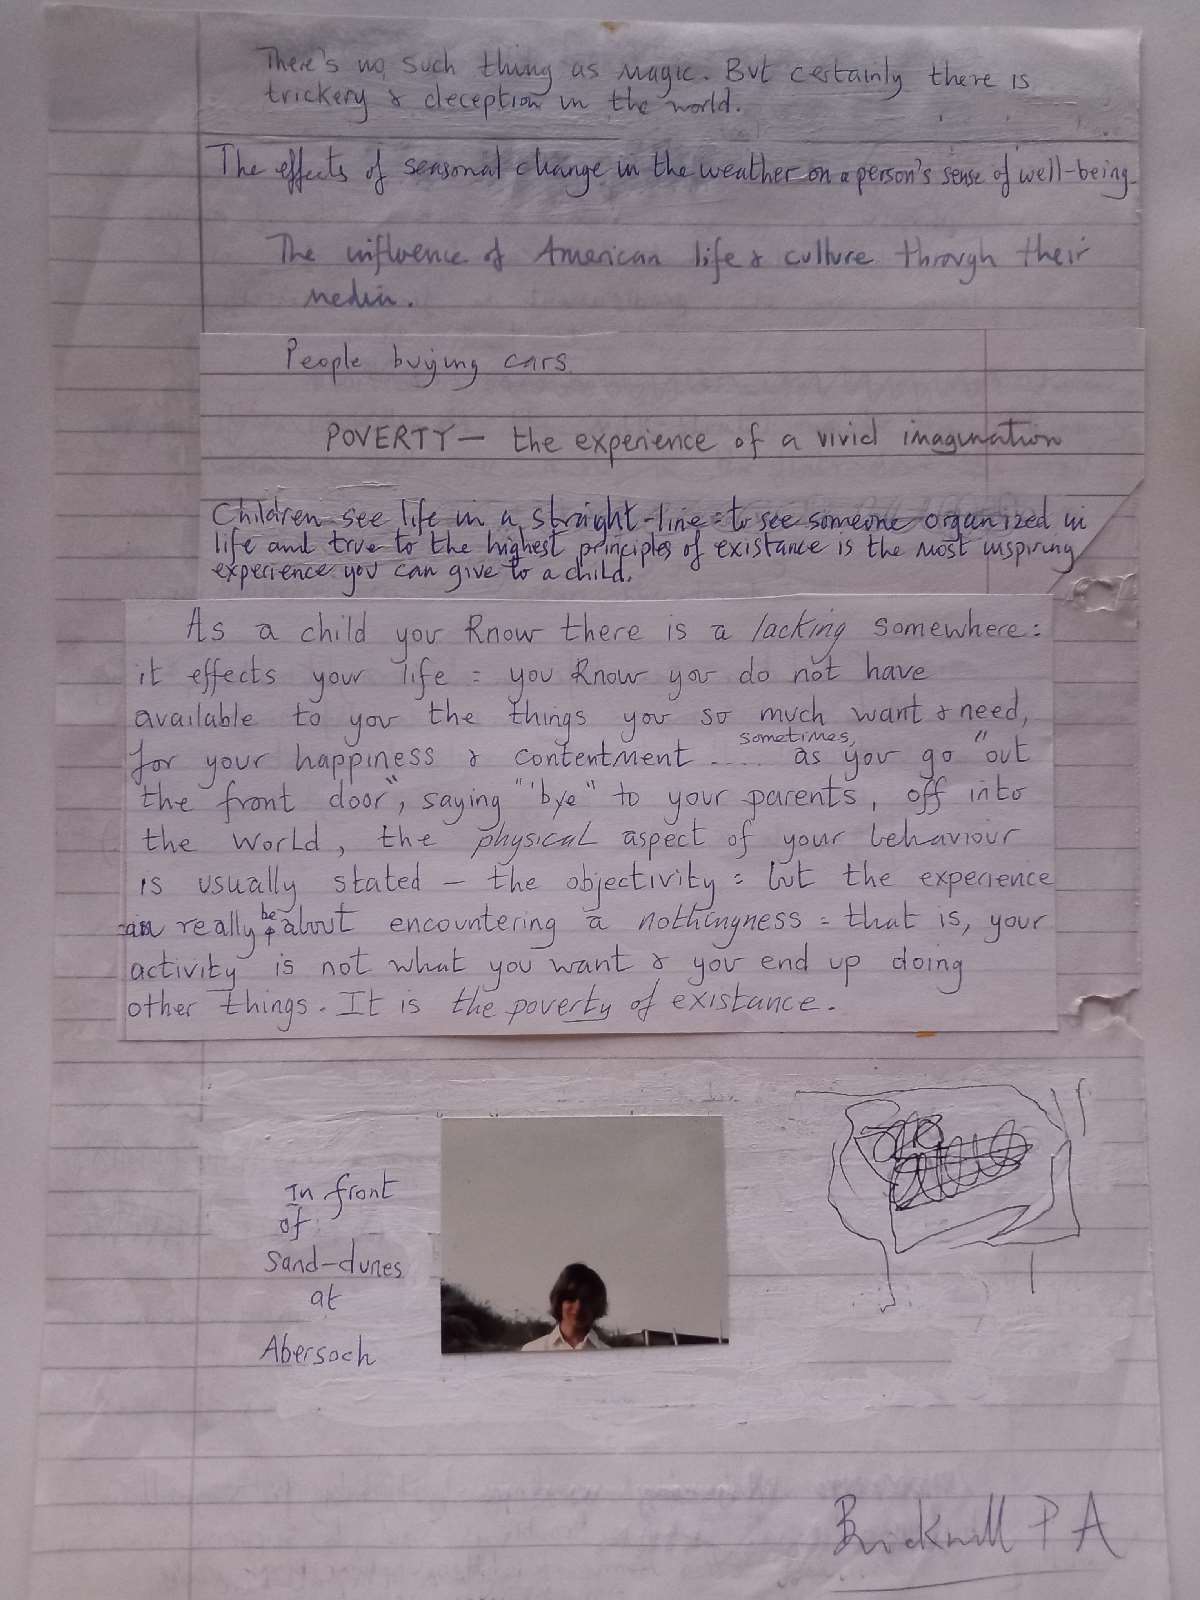 There's no such thing as magic. But certainly there is
trickery & deception in the world.
The effects of seasonal change in the weather on a person's sense of well-being.
The influence of American life & culture through their
media.
People buying cars
POVERTY — the experience of a vivid imagination
Children see life in a straight-line = to see someone organized in
life and true to the highest principles of existance is the most inspiring
experience you can give to a child.
As a child you know there is a lacking somewhere:
it effects your life = you know you do not have
available to you the things you so much want & need,
for your happiness & contentment .... sometimes, as you go "out
the front door", saying "'bye" to your parents, off into
the world, the physical aspect of your behaviour
is usually stated — the objectivity = but the experience
can really be about encountering a nothingness = that is, your
activity is not what you want & you end up doing
other things. It is the poverty of existance.
In front
of
Sand-dunes
at
Abersoch
Bricknill P A